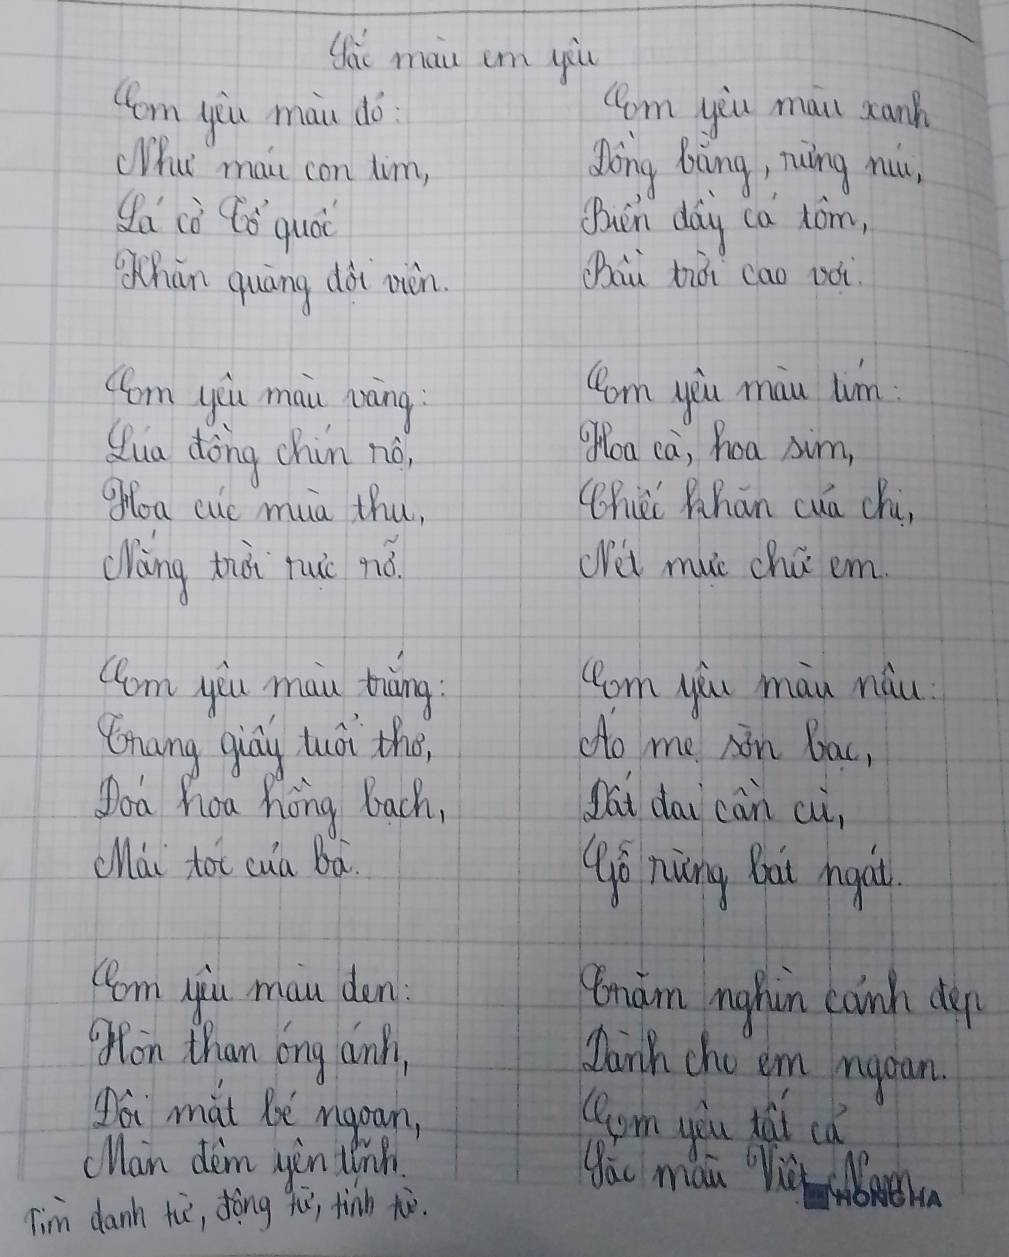 Sắc màu em yêu
Em yêu màu đỏ:
Như máu con tim,
Lá cờ Tổ quốc
Khăn quàng đội viên.
Em yêu màu xanh
Đồng bằng, rừng núi,
Biển đầy cá tôm,
Bầu trời cao vời.
Em yêu màu vàng:
Lúa đồng chín rộ,
Hoa cúc mùa thu,
Nắng trời rực rỡ.
Em yêu màu tím:
Hoa cà, hoa sim,
Chiếc khăn của chị,
Nét mực chữ em.
Em yêu màu trắng:
Trang giấy tuổi thơ,
Đoá hoa hồng bạch,
Mái tóc của bà.
Em yêu màu nâu:
Áo mẹ sờn bạc,
Đất đai cần cù,
Gỗ rừng bát ngát.
Em yêu màu đen:
Hòn than óng ánh,
Đôi mắt bé ngoan,
Màn đêm yên tĩnh.
Trăm nghìn cảnh đẹp
Dành cho em ngoan.
Em yêu tất cả
Sắc màu Việt Nam
Tìm danh từ, động từ, tính từ.